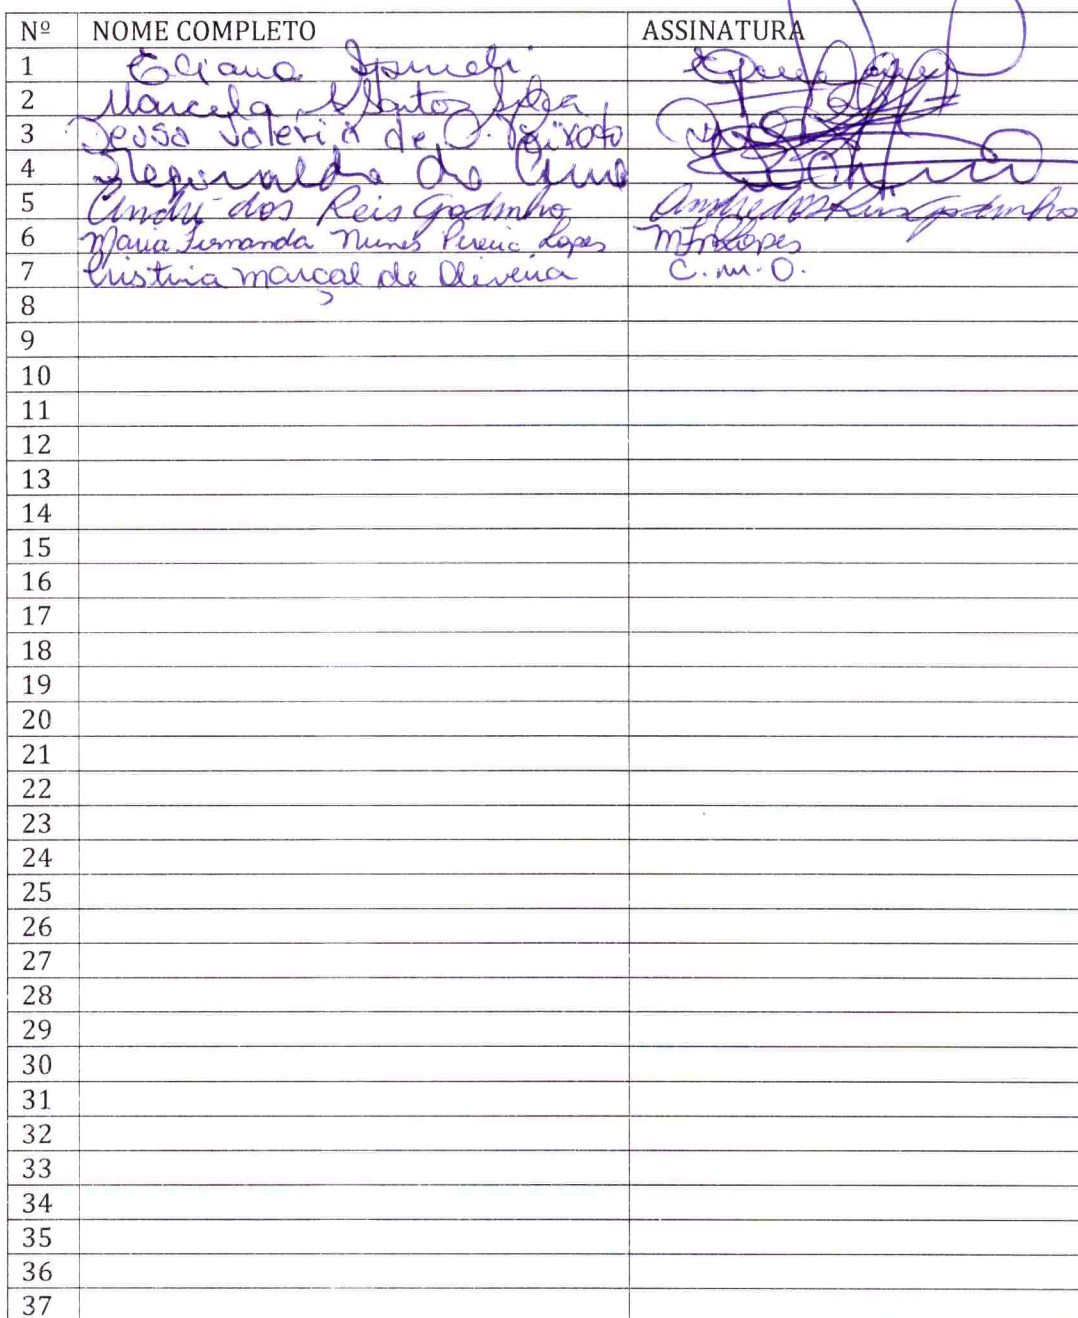 Nº NOME COMPLETO ASSINATURA
1 Eliana
2 Marcela Santos Silva
3 Valeria de O. Peixoto
4 Reginaldo da
5 André dos Reis Godinho André dos Reis Godinho
6 Maria Fernanda Nunes Pereira Lopes MFNPLopes
7 Cristina Marçal de Oliveira C.M.O.
8
9
10
11
12
13
14
15
16
17
18
19
20
21
22
23
24
25
26
27
28
29
30
31
32
33
34
35
36
37